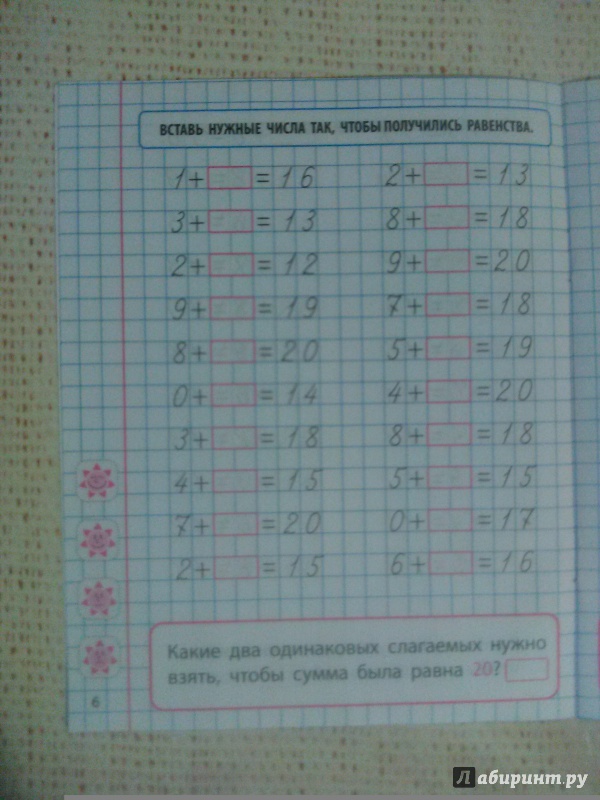 ВСТАВЬ НУЖНЫЕ ЧИСЛА ТАК, ЧТОБЫ ПОЛУЧИЛИСЬ РАВЕНСТВА.
1+ = 16 2+ = 13
3+ = 13 8+ = 18
2+ = 12 9+ = 20
9+ = 19 7+ = 18
8+ = 20 5+ = 19
0+ = 14 4+ = 20
3+ = 18 8+ = 18
4+ = 15 5+ = 15
7+ = 20 0+ = 17
2+ = 15 6+ = 16
Какие два одинаковых слагаемых нужно
взять, чтобы сумма была равна 20?
6
Лабиринт.ру